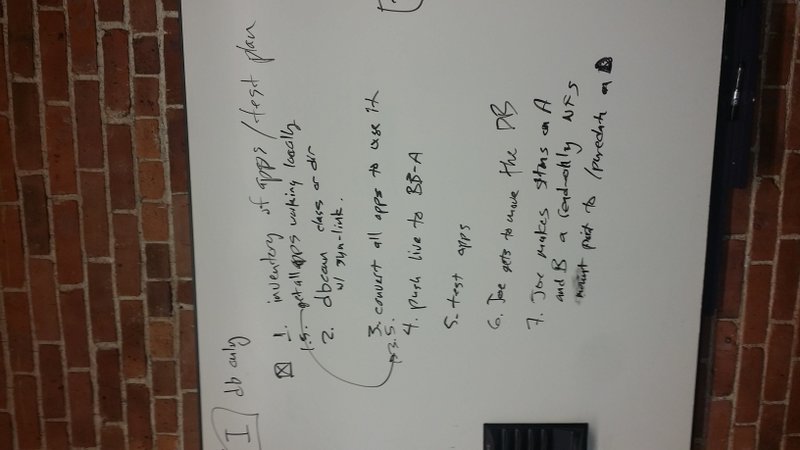 I db only
1. inventory of apps / test plan
1.5. get all apps working locally
2. dbconn class or dir
w/ sym-link.
3. convert all apps to use it
3.5.
4. push live to BB-A
5. test apps
6. Joe gets to move the DB
7. Joe makes on A
and B a read-only NFS
mount point to / on